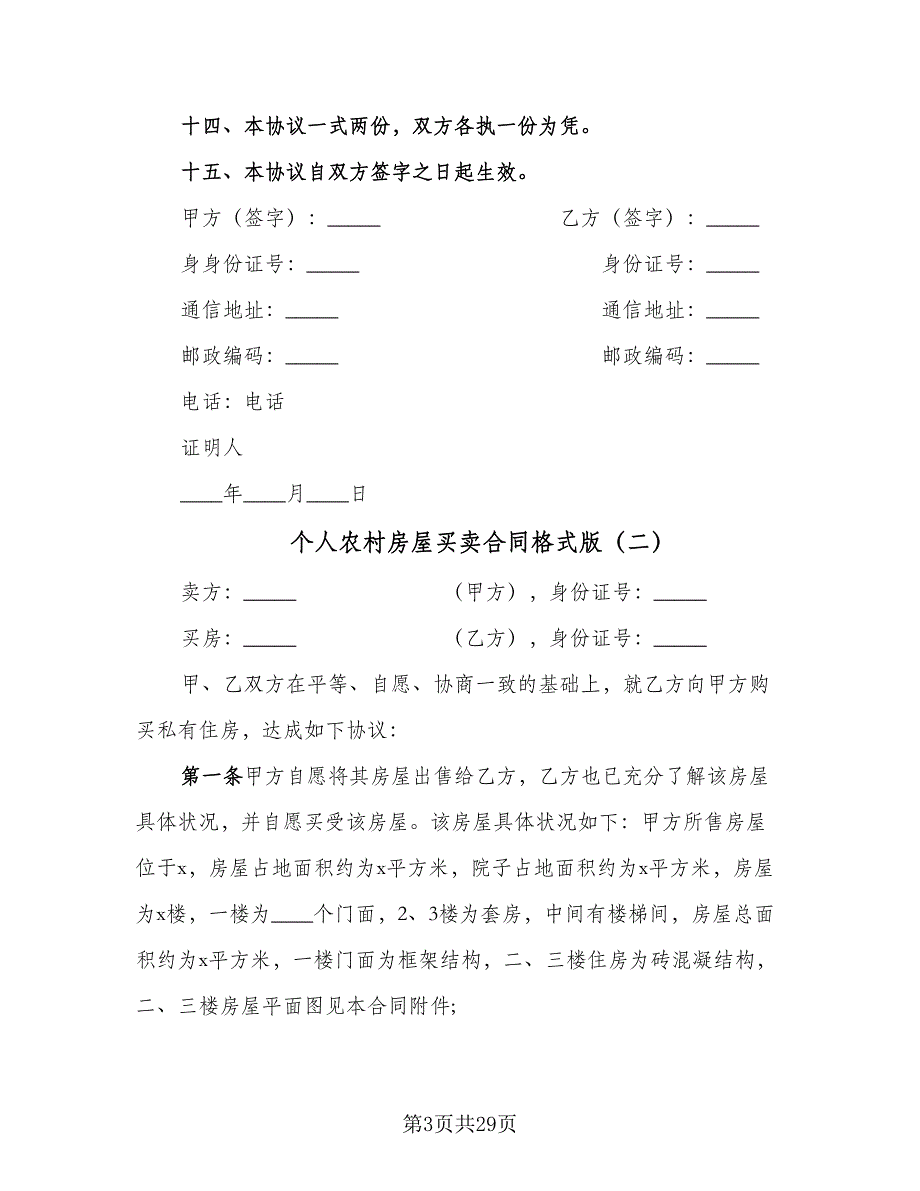 十四、本协议一式两份，双方各执一份为凭。
十五、本协议自双方签字之日起生效。
甲方（签字）：_____ 乙方（签字）：_____
身身份证号：_____ 身份证号：_____
通信地址：_____ 通信地址：_____
邮政编码：_____ 邮政编码：_____
电话：电话
证明人
____年____月____日
个人农村房屋买卖合同格式版（二）
卖方：_____ （甲方），身份证号：_____
买房：_____ （乙方），身份证号：_____
甲、乙双方在平等、自愿、协商一致的基础上，就乙方向甲方购
买私有住房，达成如下协议：
第一条甲方自愿将其房屋出售给乙方，乙方也已充分了解该房屋
具体状况，并自愿买受该房屋。该房屋具体状况如下：甲方所售房屋
位于x，房屋占地面积约为x平方米，院子占地面积约为x平方米，房屋
为x楼，一楼为____个门面，2、3楼为套房，中间有楼梯间，房屋总面
积约为x平方米，一楼门面为框架结构，二、三楼住房为砖混凝结构，
二、三楼房屋平面图见本合同附件;
第3页共29页